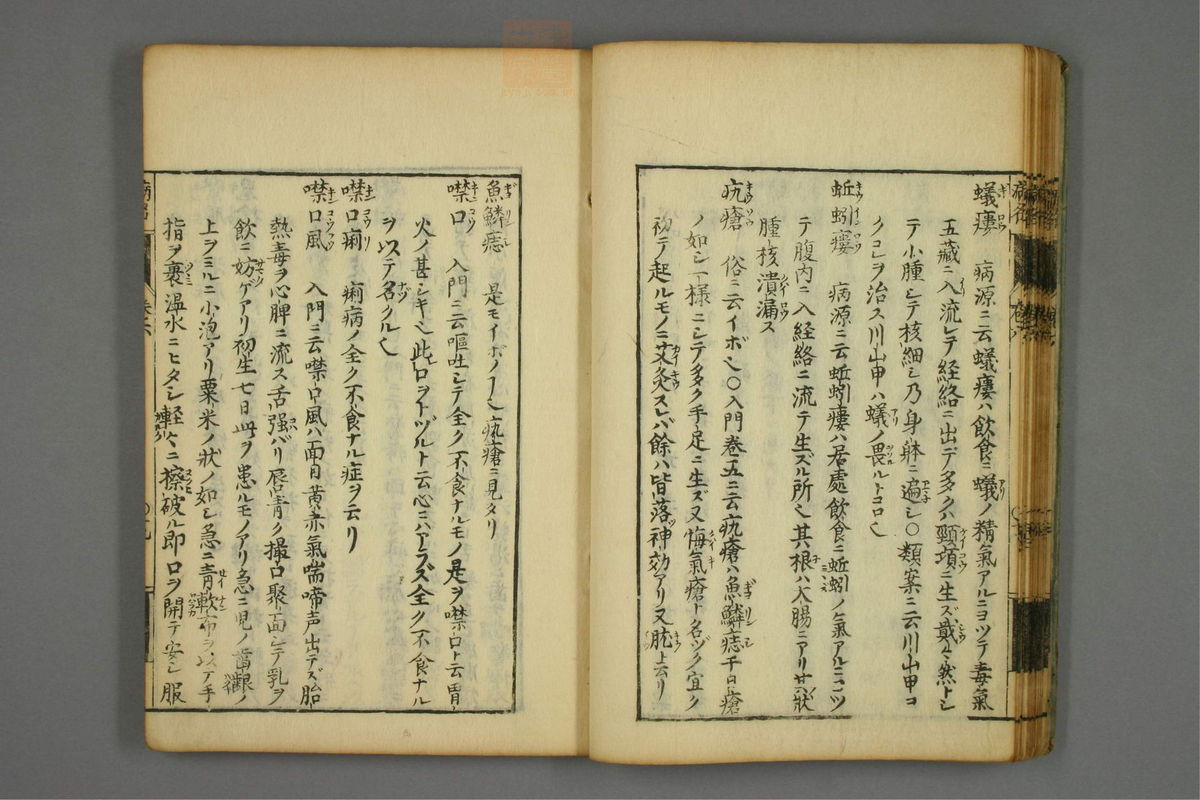 蟻瘻 病源ニ云蟻瘻ハ飲食ニ蟻ノ精氣アルニヨツテ毒氣
五藏ニ入流レテ経絡ニ出デ多クハ頸項ニ生ズ戢々然トシ
テ小腫シテ核細シ乃身躰ニ遍シ○類案ニ云川山甲コ
クコレヲ治ス川山甲ハ蟻ノ畏ルトコロ也
蚯蚓瘻 病源ニ云蚯蚓瘻ハ居處飲食ニ蚯蚓ノ氣アルニヨツ
テ腹内ニ入経絡ニ流テ生ズル所也其根ハ大腸ニアリ其状
腫核潰漏ス
疣瘡 俗ニ云イボ也○入門巻五ニ云疣瘡ハ魚鱗痣千日瘡
ノ如シ一様ニシテ多ク手足ニ生ズ又悔氣瘡ト名ヅク宜ク
初テ起ルモノニ艾灸スレバ餘ハ皆落神効アリ又肬上云リ
魚鱗痣 是モイボノ也疣瘡ニ見タリ
噤口 入門ニ云嘔吐シテ全ク不食ナルモノ是ヲ噤口ト云胃
火ノ甚シキ也此口ヲトヅルト云心ニハアラズ全ク不食ナル
ヲ以テ名クル也
噤口痢 痢病ノ全ク不食ナル症ヲ云リ
噤口風 入門ニ云噤口風ハ面目黄赤氣喘啼声出デズ胎
熱毒ヲ心脾ニ流ス舌強バリ唇青ク撮口聚面シテ乳ヲ
飲ニ妨ゲアリ初生七日此ヲ患ルモノアリ急ニ児ノ齒齦ノ
上ヲミルニ小泡アリ粟米ノ状ノ如シ急ニ青軟布ヲ以テ手
指ヲ裹温水ニヒタシ軽々ニ擦破ル即口ヲ開テ安シ服